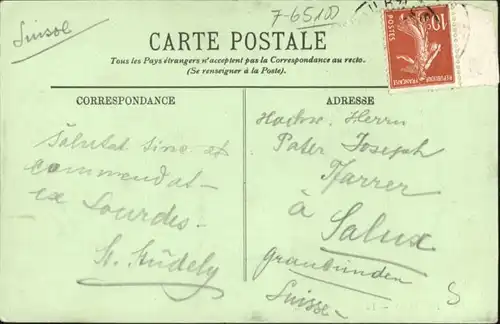 7-65100
CARTE POSTALE
Tous les Pays étrangers n'acceptent pas la Correspondance au recto.
(Se renseigner à la Poste).
CORRESPONDANCE
ADRESSE
10c
POSTES
REPUBLIQUE FRANÇAISE
Salutat sino et
commendat
ex Lourdes.
Hochw. Herrn
Pater Joseph
Pfarrer
à Salux
Graubünden
Suisse